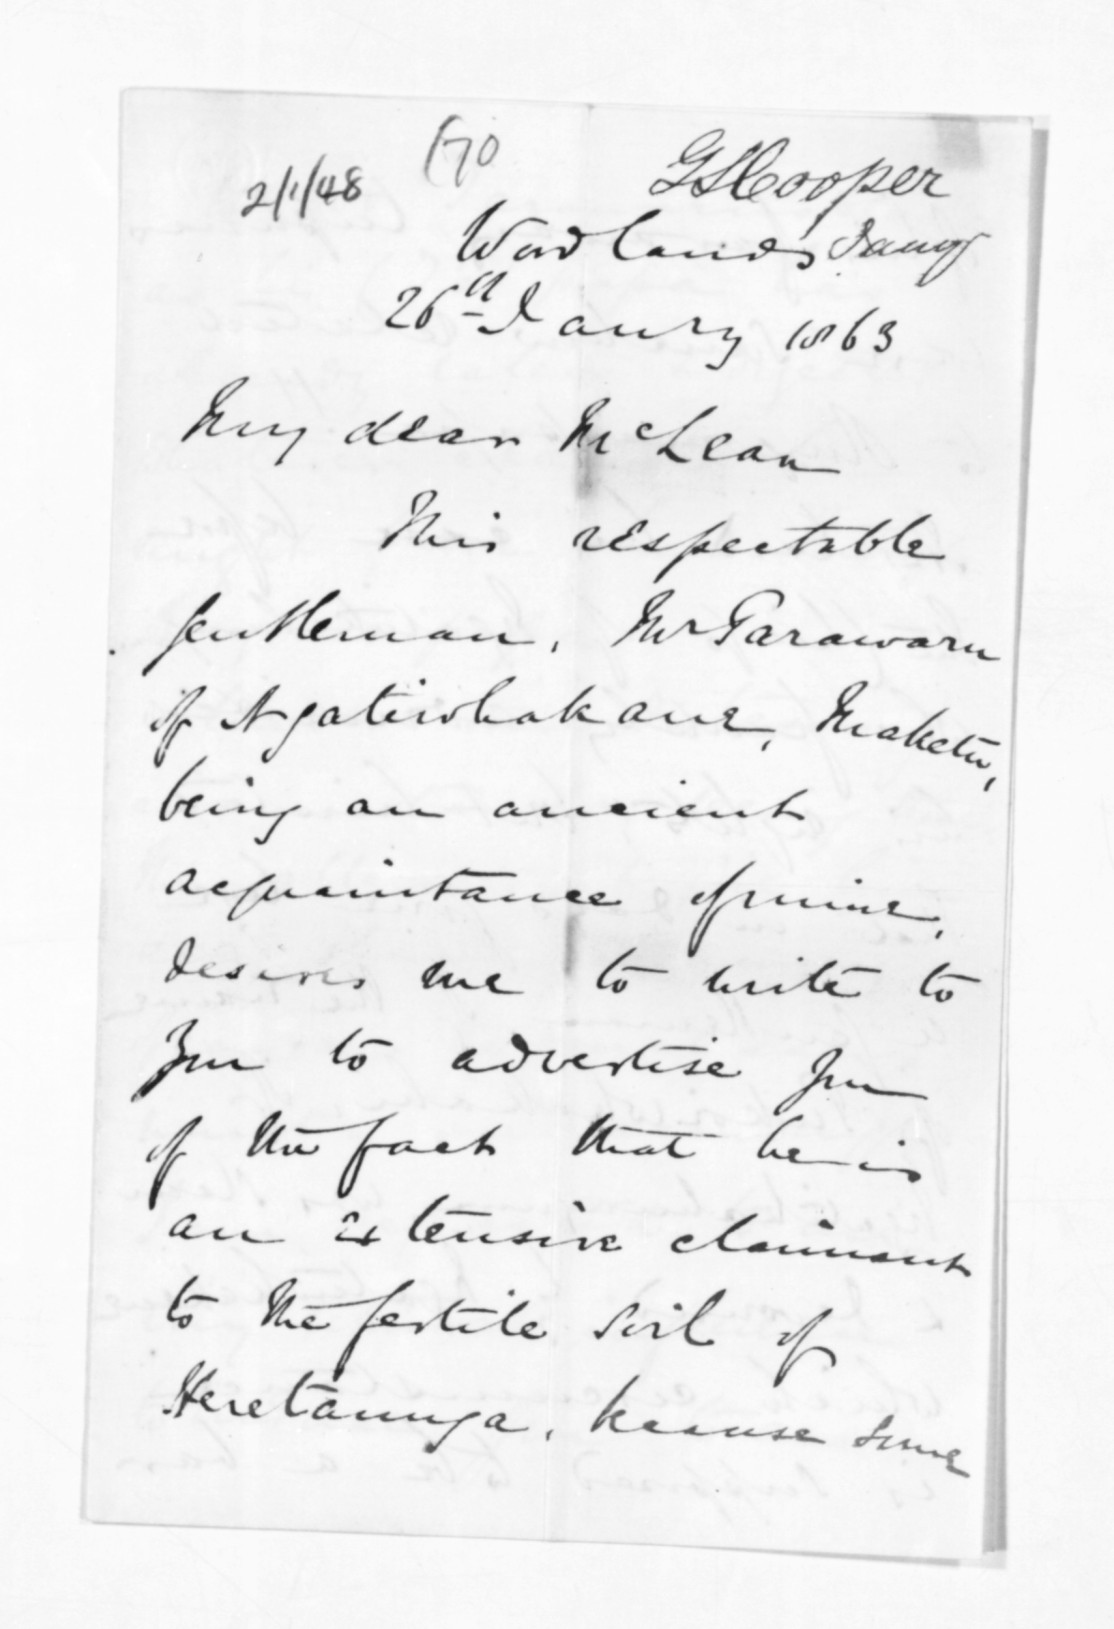 2/1/48
(70
GSCooper
Woodlands
26th Janury 1863
My dear McLean
This respectable
gentleman, Mr Tarawaru
of Ngatiwhakaue, Maketu,
being an ancient
acquaintance of mine,
desires me to write to
you to advertise you
of the fact that he is
an extensive claimant
to the fertile soil of
Heretaunga, because some